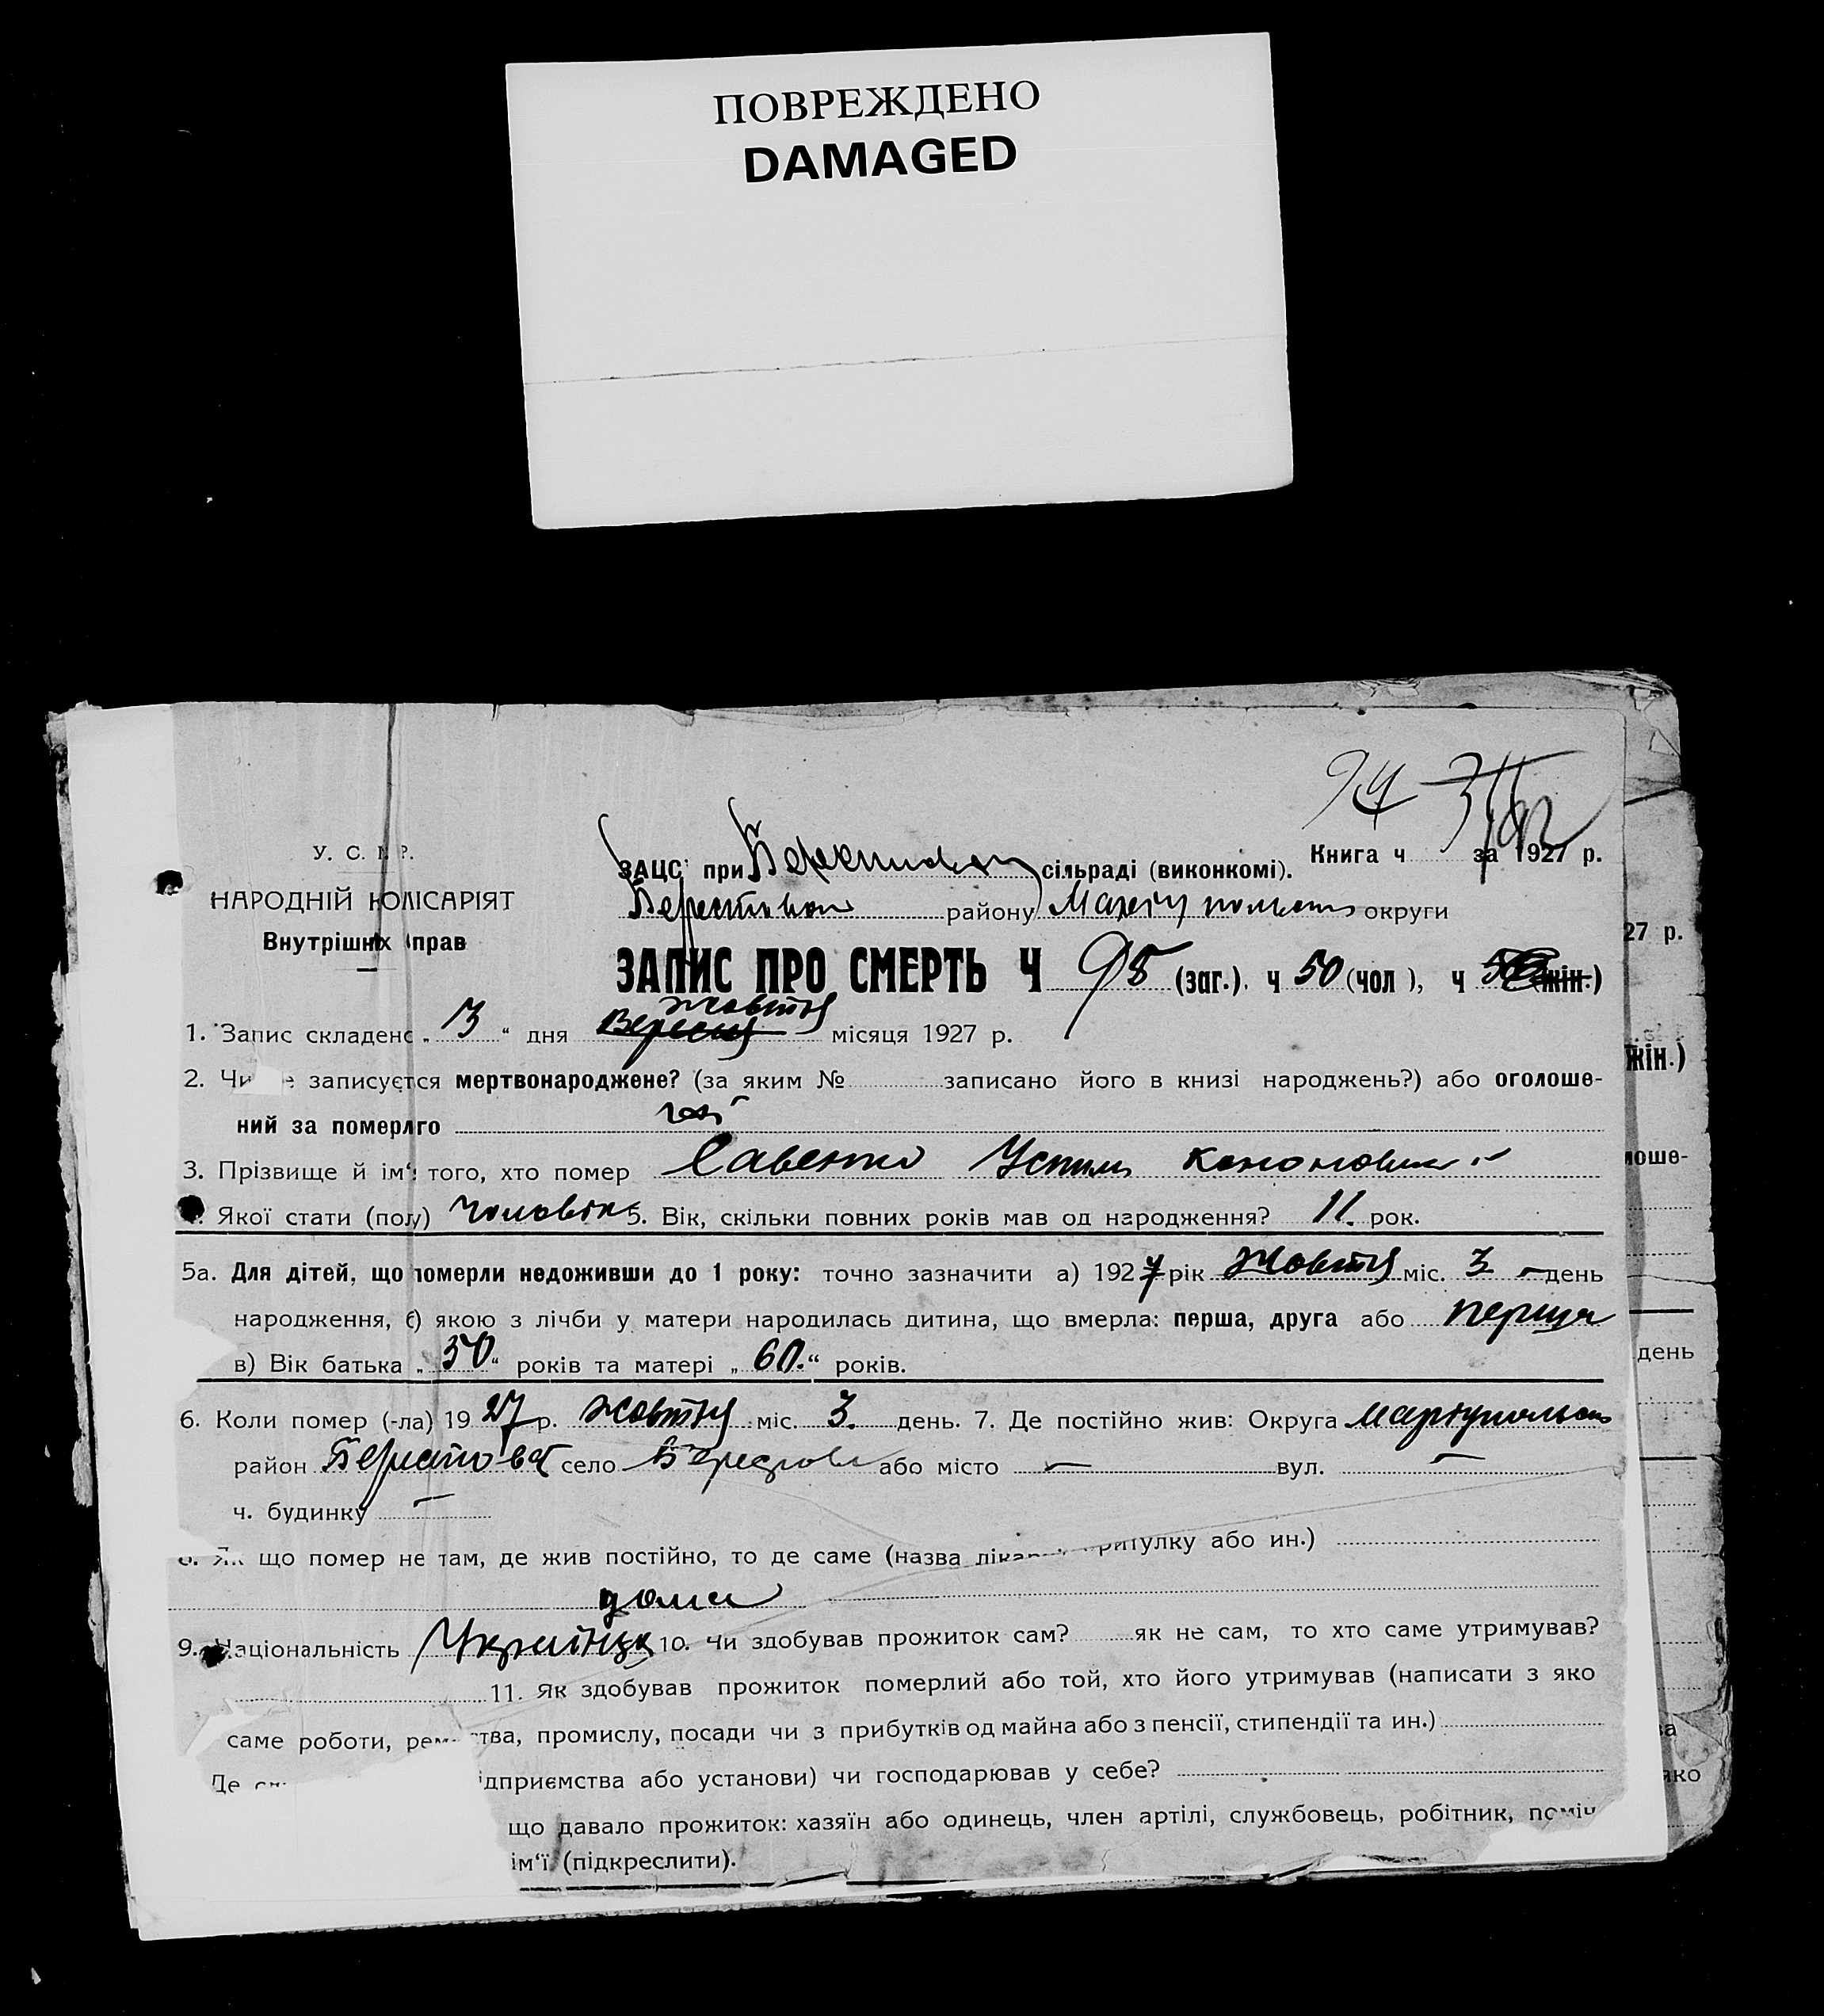 ПОВРЕЖДЕНО
DAMAGED
94
Книга ч за 1927 р.
У. С. Р.
ЗАЦС при сільраді (виконкомі).
НАРОДНІЙ КОМІСАРІЯТ
району округи
Внутрішніх справ
ЗАПИС ПРО СМЕРТЬ Ч 95 (заг.), ч 50 (чол), ч (жін.)
жовтня
1. Запис складено „ 3 “ дня Вересня місяця 1927 р.
2. Чи записується мертвонароджене? (за яким № записано його в книзі народжень?) або оголоше-
ний за померлго
3. Прізвище й ім'я того, хто помер Савенко Устим Кононович
Якої стати (полу) чоловік 5. Вік, скільки повних років мав од народження? 11. рок.
5а. Для дітей, що померли недоживши до 1 року: точно зазначити а) 1927 рік жовтня міс. 3 день
народження, б) якою з лічби у матери народилась дитина, що вмерла: перша, друга або перша
в) Вік батька „ 50 “ років та матері „ 60. “ років.
6. Коли помер (-ла) 1927 р. жовтня міс. 3. день. 7. Де постійно жив: Округа Маріупольськ
район Берестове село або місто — вул. —
ч. будинку —
Як що помер не там, де жив постійно, то де саме (назва притулку або ин.)
дома
9. Національність Українец 10. Чи здобував прожиток сам? як не сам, то хто саме утримував?
11. Як здобував прожиток померлий або той, хто його утримував (написати з яко
саме роботи, промислу, посади чи з прибутків од майна або з пенсії, стипендії та ин.)
Де ідприємства або установи) чи господарював у себе?
що давало прожиток: хазяїн або одинець, член артілі, службовець, робітник, поміч
ім'ї (підкреслити).
27 р.
жін.)
лоше-
день
яко